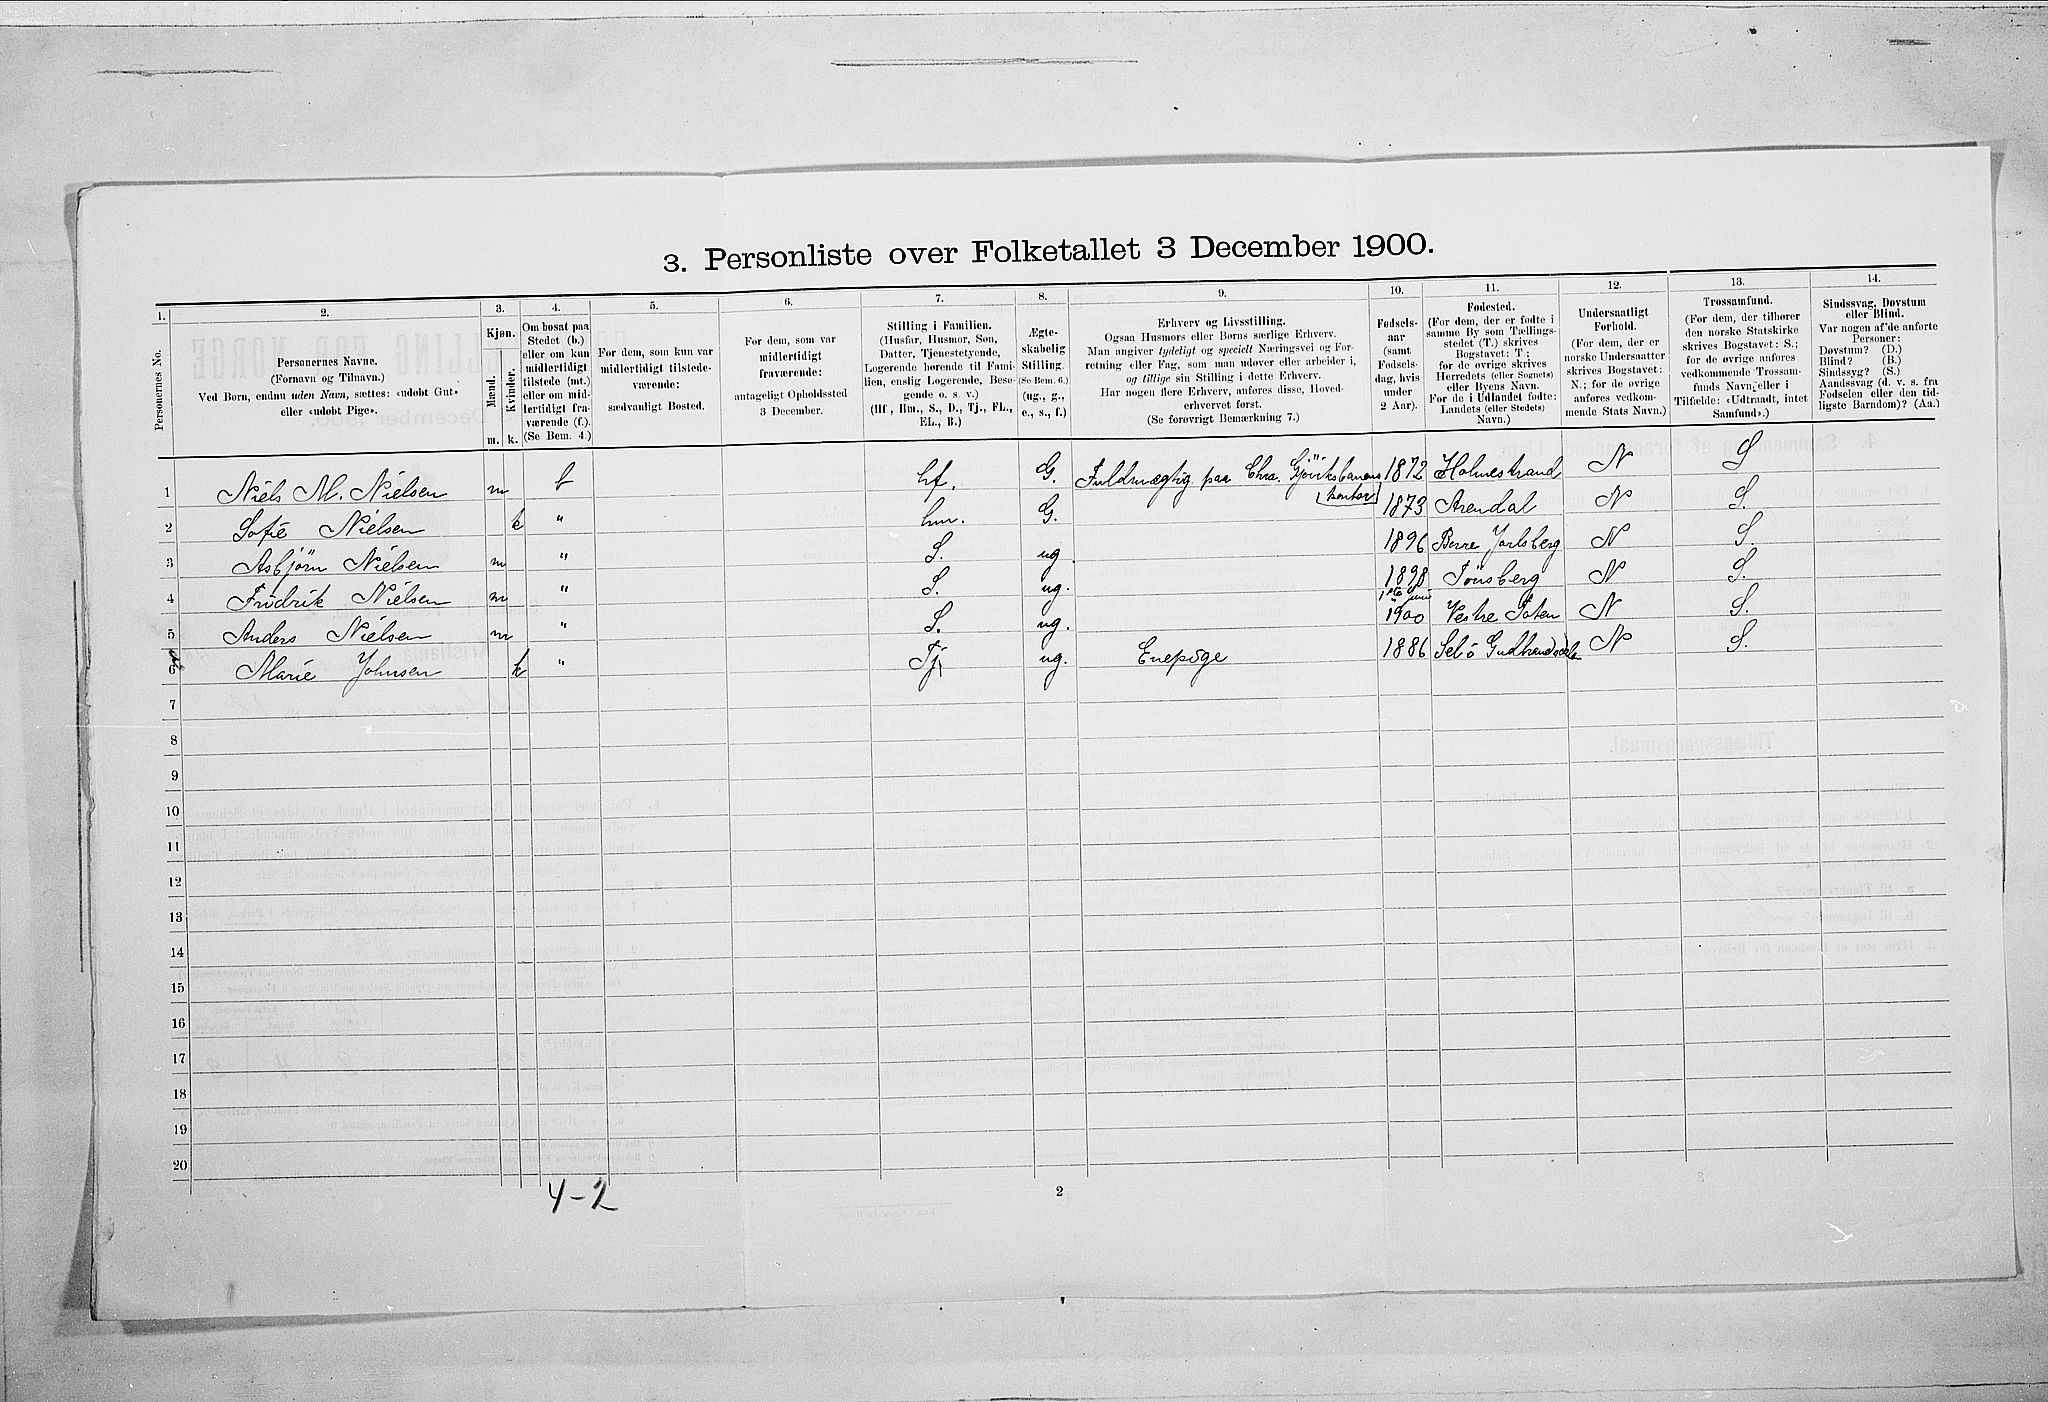 3. Personliste over Folketallet 3 December 1900.
1. 2. 3. 4. 5. 6. 7. 8. 9. 10. 11. 12. 13. 14.
Personernes No.
Personernes Navne.
(Fornavn og Tilnavn.)
Ved Børn, endnu uden Navn, sættes: «udøbt Gut»
eller «udøbt Pige».
Kjøn.
Mænd. Kvinder.
m. k.
Om bosat paa
Stedet (b.)
eller om kun
midlertidigt
tilstede (mt.)
eller om mid-
lertidigt fra-
værende (f.).
(Se Bem. 4.)
For dem, som kun var
midlertidigt tilstede-
værende:
sædvanligt Bosted.
For dem, som var
midlertidigt
fraværende:
antageligt Opholdssted
3 December.
Stilling i Familien.
(Husfar, Husmor, Søn,
Datter, Tjenestetyende,
Logerende hørende til Fami-
lien, enslig Logerende, Besø-
gende o. s. v.)
(Hf, Hm., S., D., Tj., FL.,
EL., B.)
Ægte-
skabelig
Stilling.
(Se Bem. 6.)
(ug., g.,
e., s., f.)
Erhverv og Livsstilling.
Ogsaa Husmors eller Børns særlige Erhverv.
Man angiver tydeligt og specielt Næringsvei og For-
retning eller Fag, som man udøver eller arbeider i,
og tillige sin Stilling i dette Erhverv.
Har nogen flere Erhverv, anføres disse, Hoved-
erhvervet først.
(Se forøvrigt Bemærkning 7.)
Fødsels-
aar
(samt
Fødsels-
dag, hvis
under
2 Aar).
Fødested.
(For dem, der er fødte i
samme By som Tællings-
stedet (T.) skrives
Bogstavet: T.;
for de øvrige skrives
Herredets (eller Sognets)
eller Byens Navn.
For de i Udlandet fødte:
Landets (eller Stedets)
Navn.)
Undersaatligt
Forhold.
(For dem, der er
norske Undersaatter
skrives Bogstavet:
N.; for de øvrige
anføres vedkom-
mende Stats Navn.)
Trossamfund.
(For dem, der tilhører
den norske Statskirke
skrives Bogstavet: S.;
for de øvrige anføres
vedkommende Trossam-
funds Navn, eller i
Tilfælde: «Udtraadt, intet
Samfund».)
Sindssvag, Døvstum
eller Blind.
Var nogen af de anførte
Personer:
Døvstum? (D.)
Blind? (B.)
Sindssyg? (S.)
Aandssvag (d. v. s. fra
Fødselen eller den tid-
ligste Barndom)? (Aa.)
1 Niels M. Nielsen m b hf. G. Fuldmægtig paa Chra. Gjöviksbanens 1872 Holmestrand N S
kontor
2 Sofie Nielsen k " hm. G. 1873 Arendal N S.
3 Asbjörn Nielsen m " S. ug. 1896 Borre Jarlsberg N S.
4 Fridrik Nielsen m " S. ug. 1898 Tönsberg N S.
5 Anders Nielsen m " S. ug. 1900 Vestre Toten N S.
6 Marie Johnsen k " Tj. ug. Enepige 1886 Selö Gudbrandsdalen N S.
7
8
9
10
11
12
13
14
15
16
17
18
19
20
4-2
2